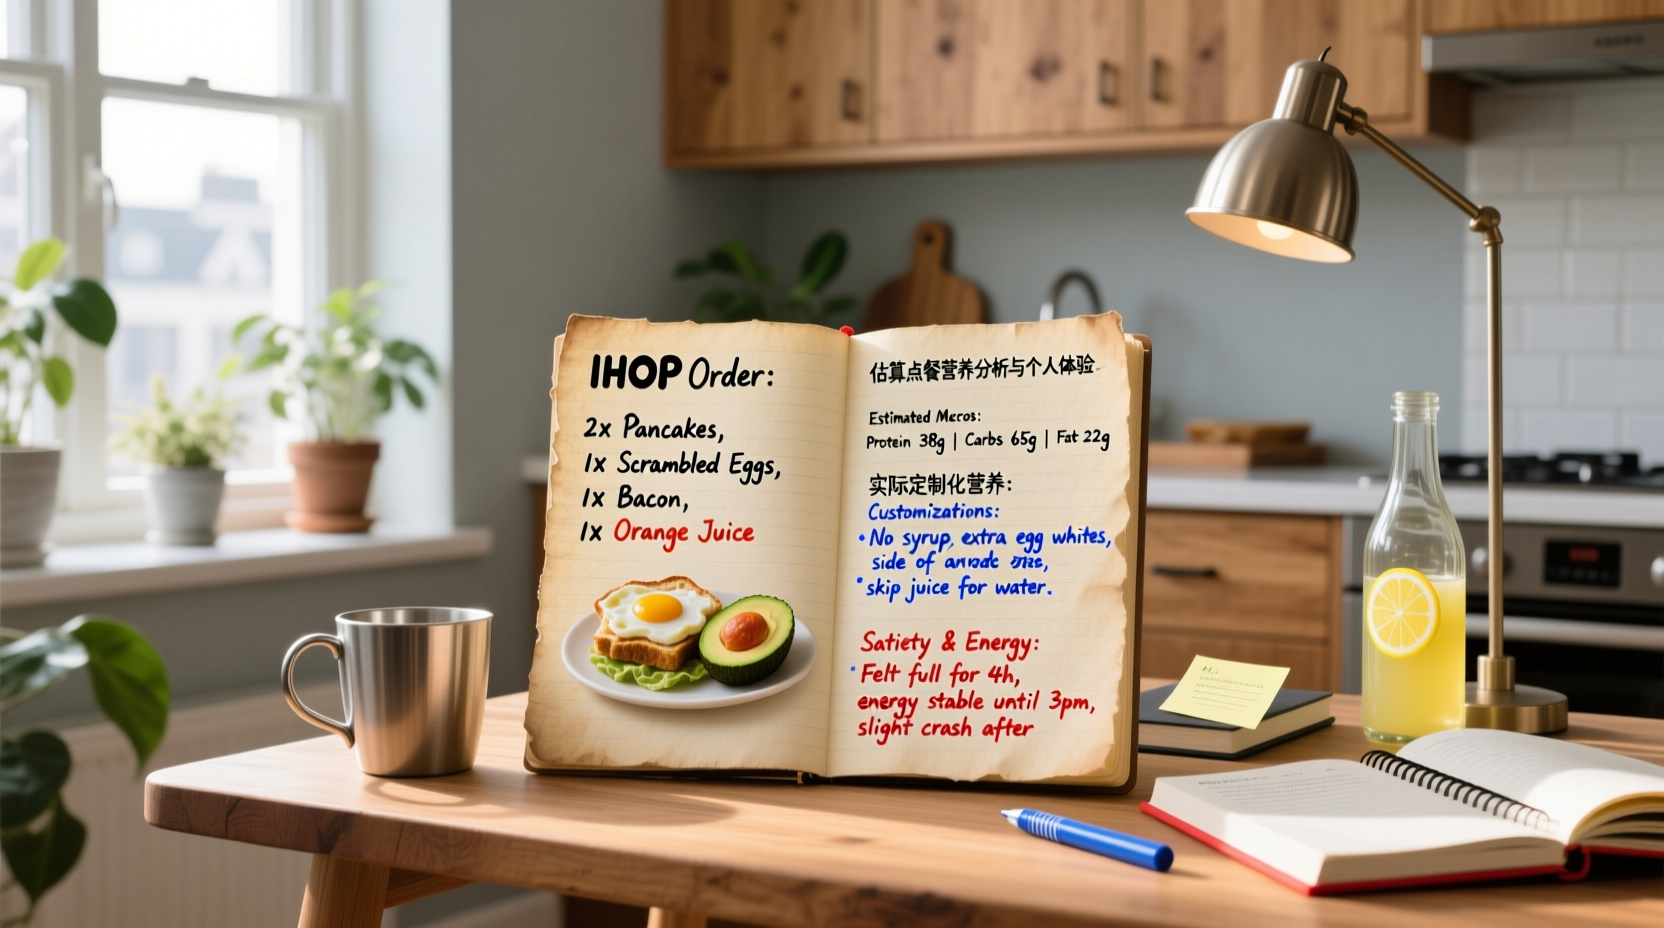 IHOP Order:
2x Pancakes,
1x Scrambled Eggs,
1x Bacon,
1x Orange Juice
估算点餐营养分析与个人体验
Estimated Macros:
Protein 38g | Carbs 65g | Fat 22g
实际定制化营养:
Customizations:
• No syrup, extra egg whites,
side of
• skip juice for water.
Satiety & Energy:
• Felt full for 4h,
energy stable until 3pm,
slight crash after